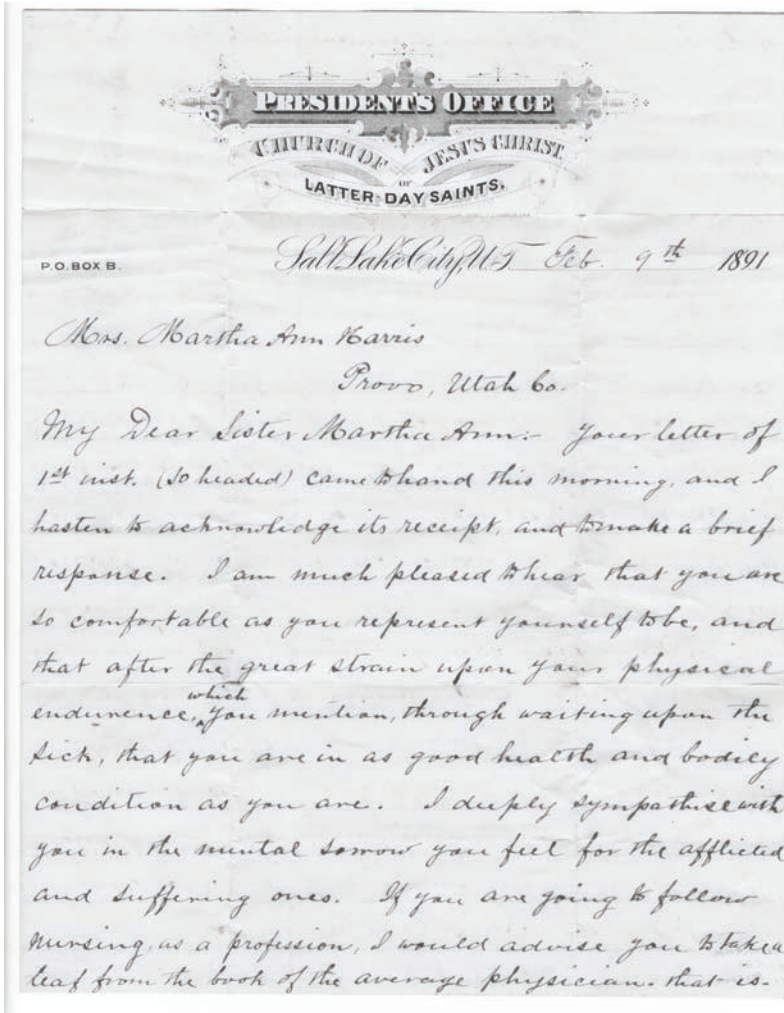 PRESIDENT'S OFFICE
CHURCH OF JESUS CHRIST
OF
LATTER-DAY SAINTS.
P.O. BOX B. Salt Lake City, U.T. Feb. 9th 1891
Mrs. Martha Ann Harris
Provo, Utah Co.
My Dear Sister Martha Ann:- Your letter of
1st inst. (so headed) came to hand this morning, and I
hasten to acknowledge its receipt, and to make a brief
response. I am much pleased to hear that you are
so comfortable as you represent yourself to be, and
that after the great strain upon your physical
which
endurence, ‸ you mention, through waiting upon the
sick, that you are in as good health and bodily
condition as you are. I deeply sympathise with
you in the mental sorrow you feel for the afflicted
and suffering ones. If you are going to follow
nursing, as a profession, I would advise you to take a
leaf from the book of the average physician. that is-